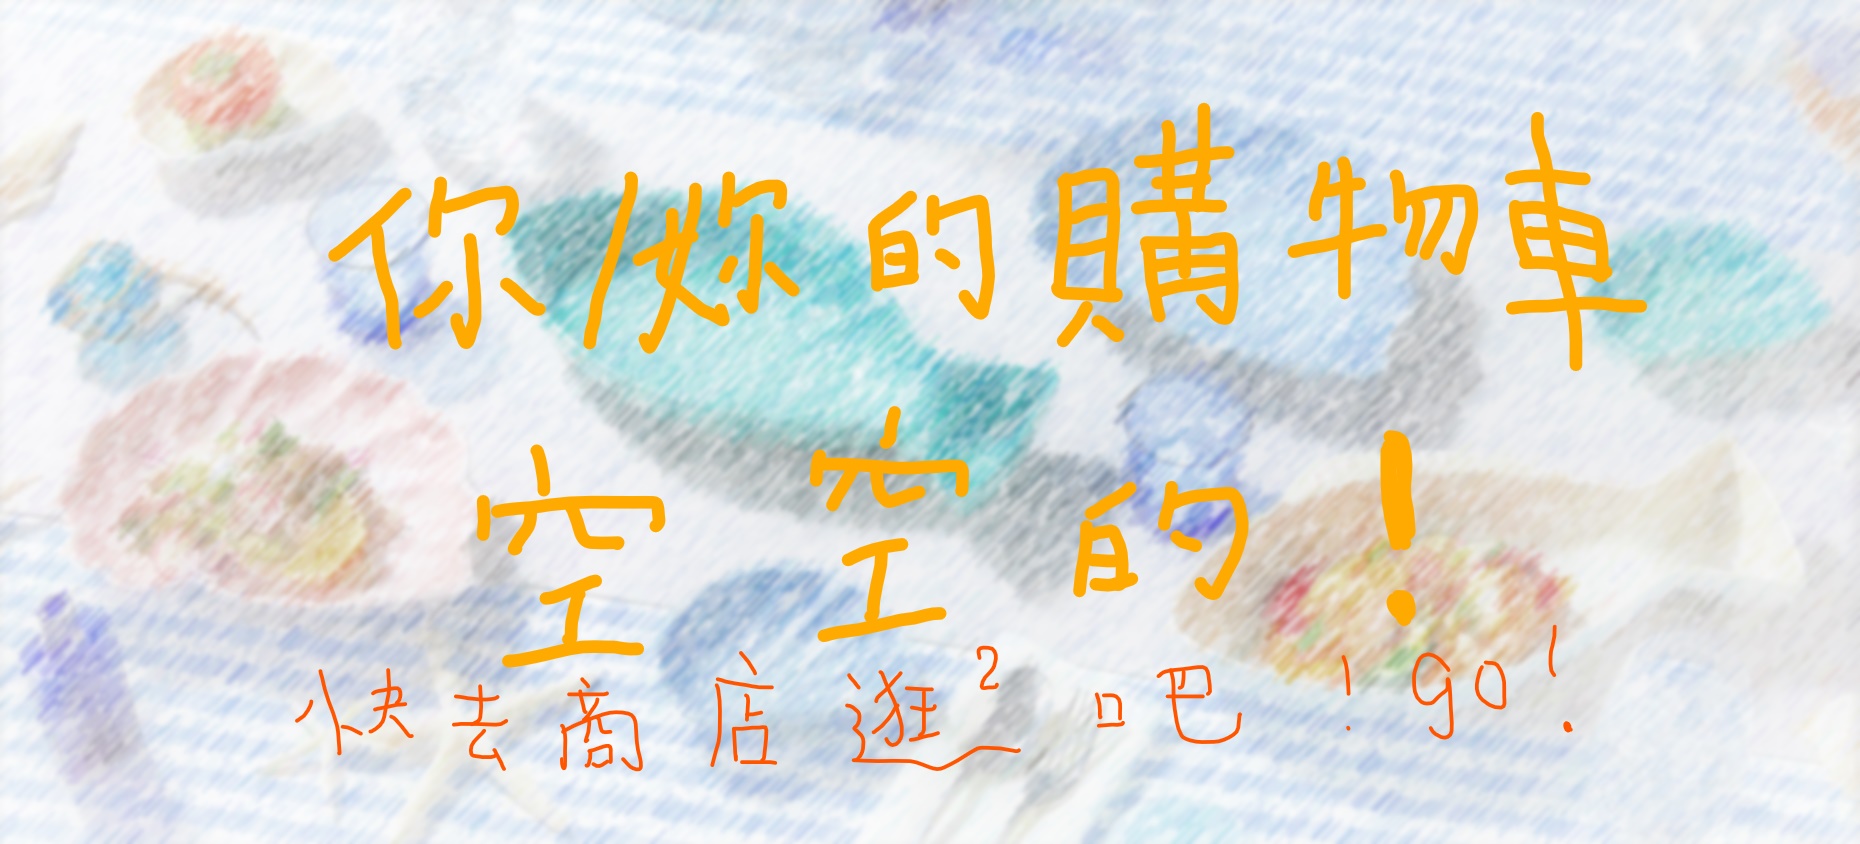 你/妳的購物車
空空的!
快去商店逛²吧!go!